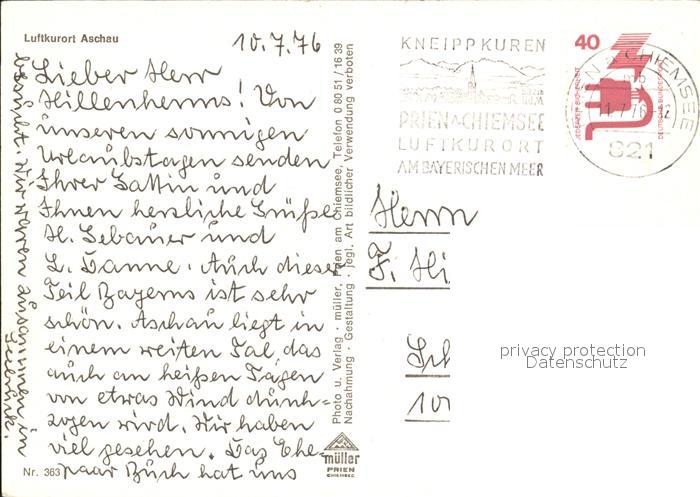 Luftkurort Aschau
10.7.76
Lieber Herr
Hillenherms! Von
unseren sonnigen
Urlaubstagen senden
Ihrer Gattin und
Ihnen herzliche Grüße
H. Gebauer und
L. Hanne. Auch dieser
Teil Bayerns ist sehr
schön. Aschau liegt in
einem weiten Tal, das
auch am heißen Tagen
von etwas Wind durch-
zogen wird. Wir haben
viel gesehen. Das Ehe-
paar Büch hat uns
besucht. Wir waren zusammen in
Seebruck.
Nr. 363
Photo u. Verlag · müller, Prien am Chiemsee, Telefon 0 80 51 / 16 39
Nachahmung · Gestaltung · jegl. Art bildlicher Verwendung verboten
müller
PRIEN
CHIEMSEE
KNEIPPKUREN
PRIEN A. CHIEMSEE
LUFTKURORT
AM BAYERISCHEN MEER
40
JEDERZEIT SICHERHEIT
DEUTSCHE BUNDESPOST
CHIEMSEE
mb
821
Herrn
F. Hi
privacy protection
Datenschutz